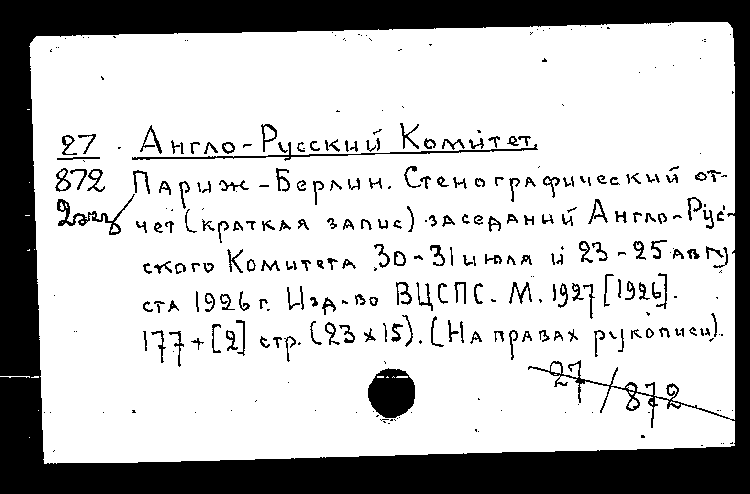 27 Англо-Русский Комитет.
872 Париж-Берлин. Стенографический от-
2экз чет (краткая запис) заседаний Англо-Рус-
ского Комитета 30-31 июля и 23-25 авгу-
ста 1926 г. Изд-во ВЦСПС. М. 1927 [1926].
177+[2] стр. (23×15). (На правах рукописи).
27/872